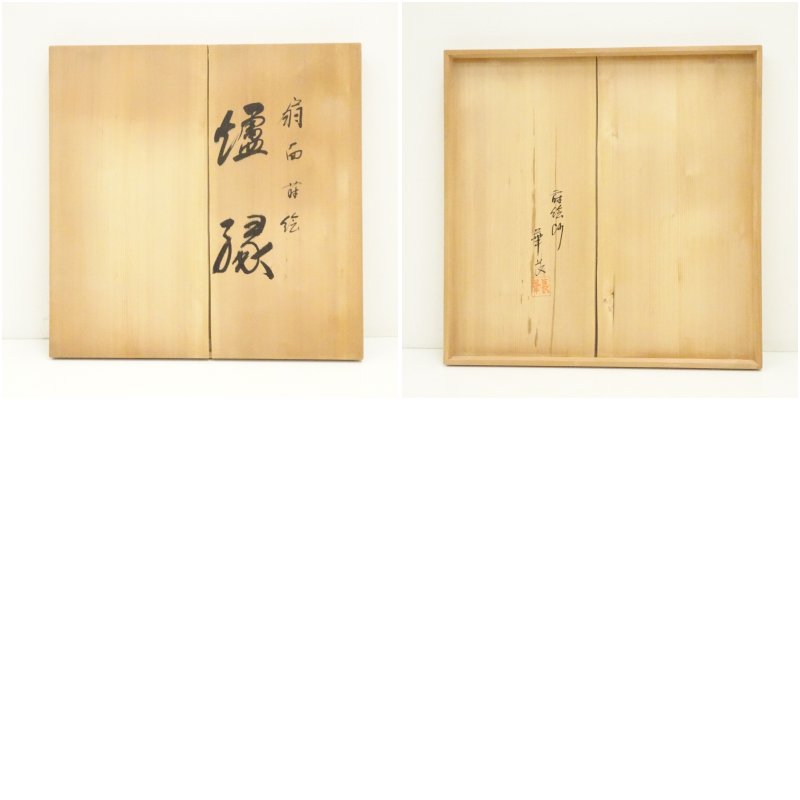 扇面蒔絵
爐縁
蒔絵師
華